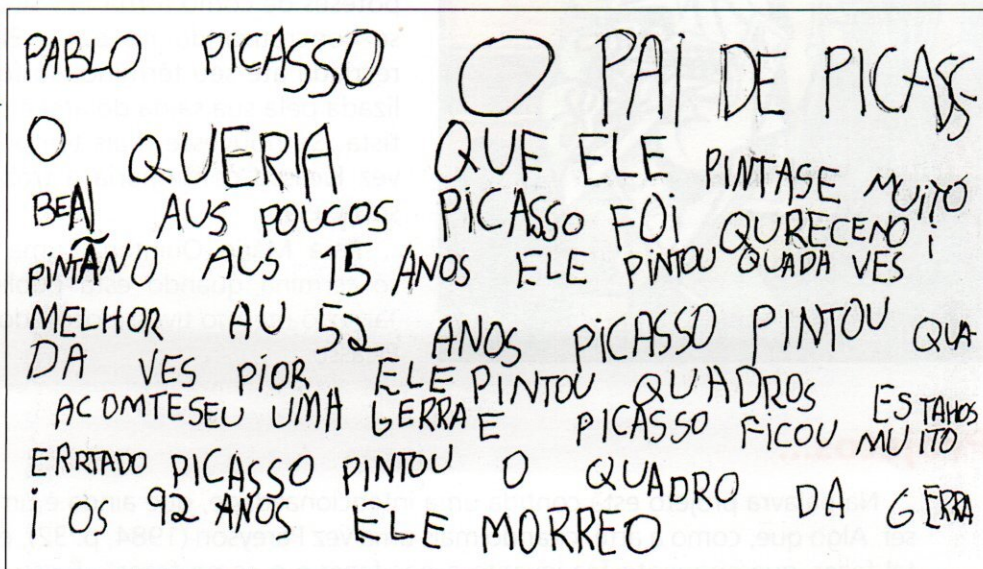 PABLO PiCASSO O PAI DE PiCASS
O QUERIA QUE ELE PiNTASE MUiTO
BEM AUS POUCOS PiCASSO FOI QURECENO i
PiNTÃNO AUS 15 ANOS ELE PiNTOU QUADA VES
MELHOR AU 52 ANOS PiCASSO PINTOU QUA
DA VES PiOR ELE PiNTOU QUADROS ESTAHOS
ACOMTESEU UMA GERRA E PiCASSO FiCOU MUiTO
ERRiTADO PiCASSO PiNTOU O QUADRO DA GERRA
i OS 92 ANOS ELE MORREO